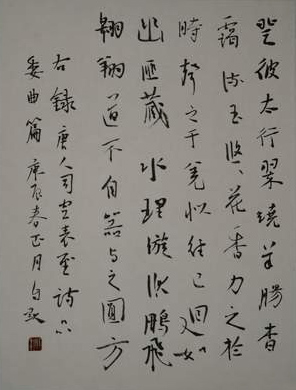 登彼太行翠繞羊腸杳
靄流玉悠〻花香力之於
時聲之于羌似往已迴如
幽匪藏水理漩洑鵬飛
翱翔道不自器与之圓方
右錄唐人司空表聖詩品
委曲篇 庚辰春正月自